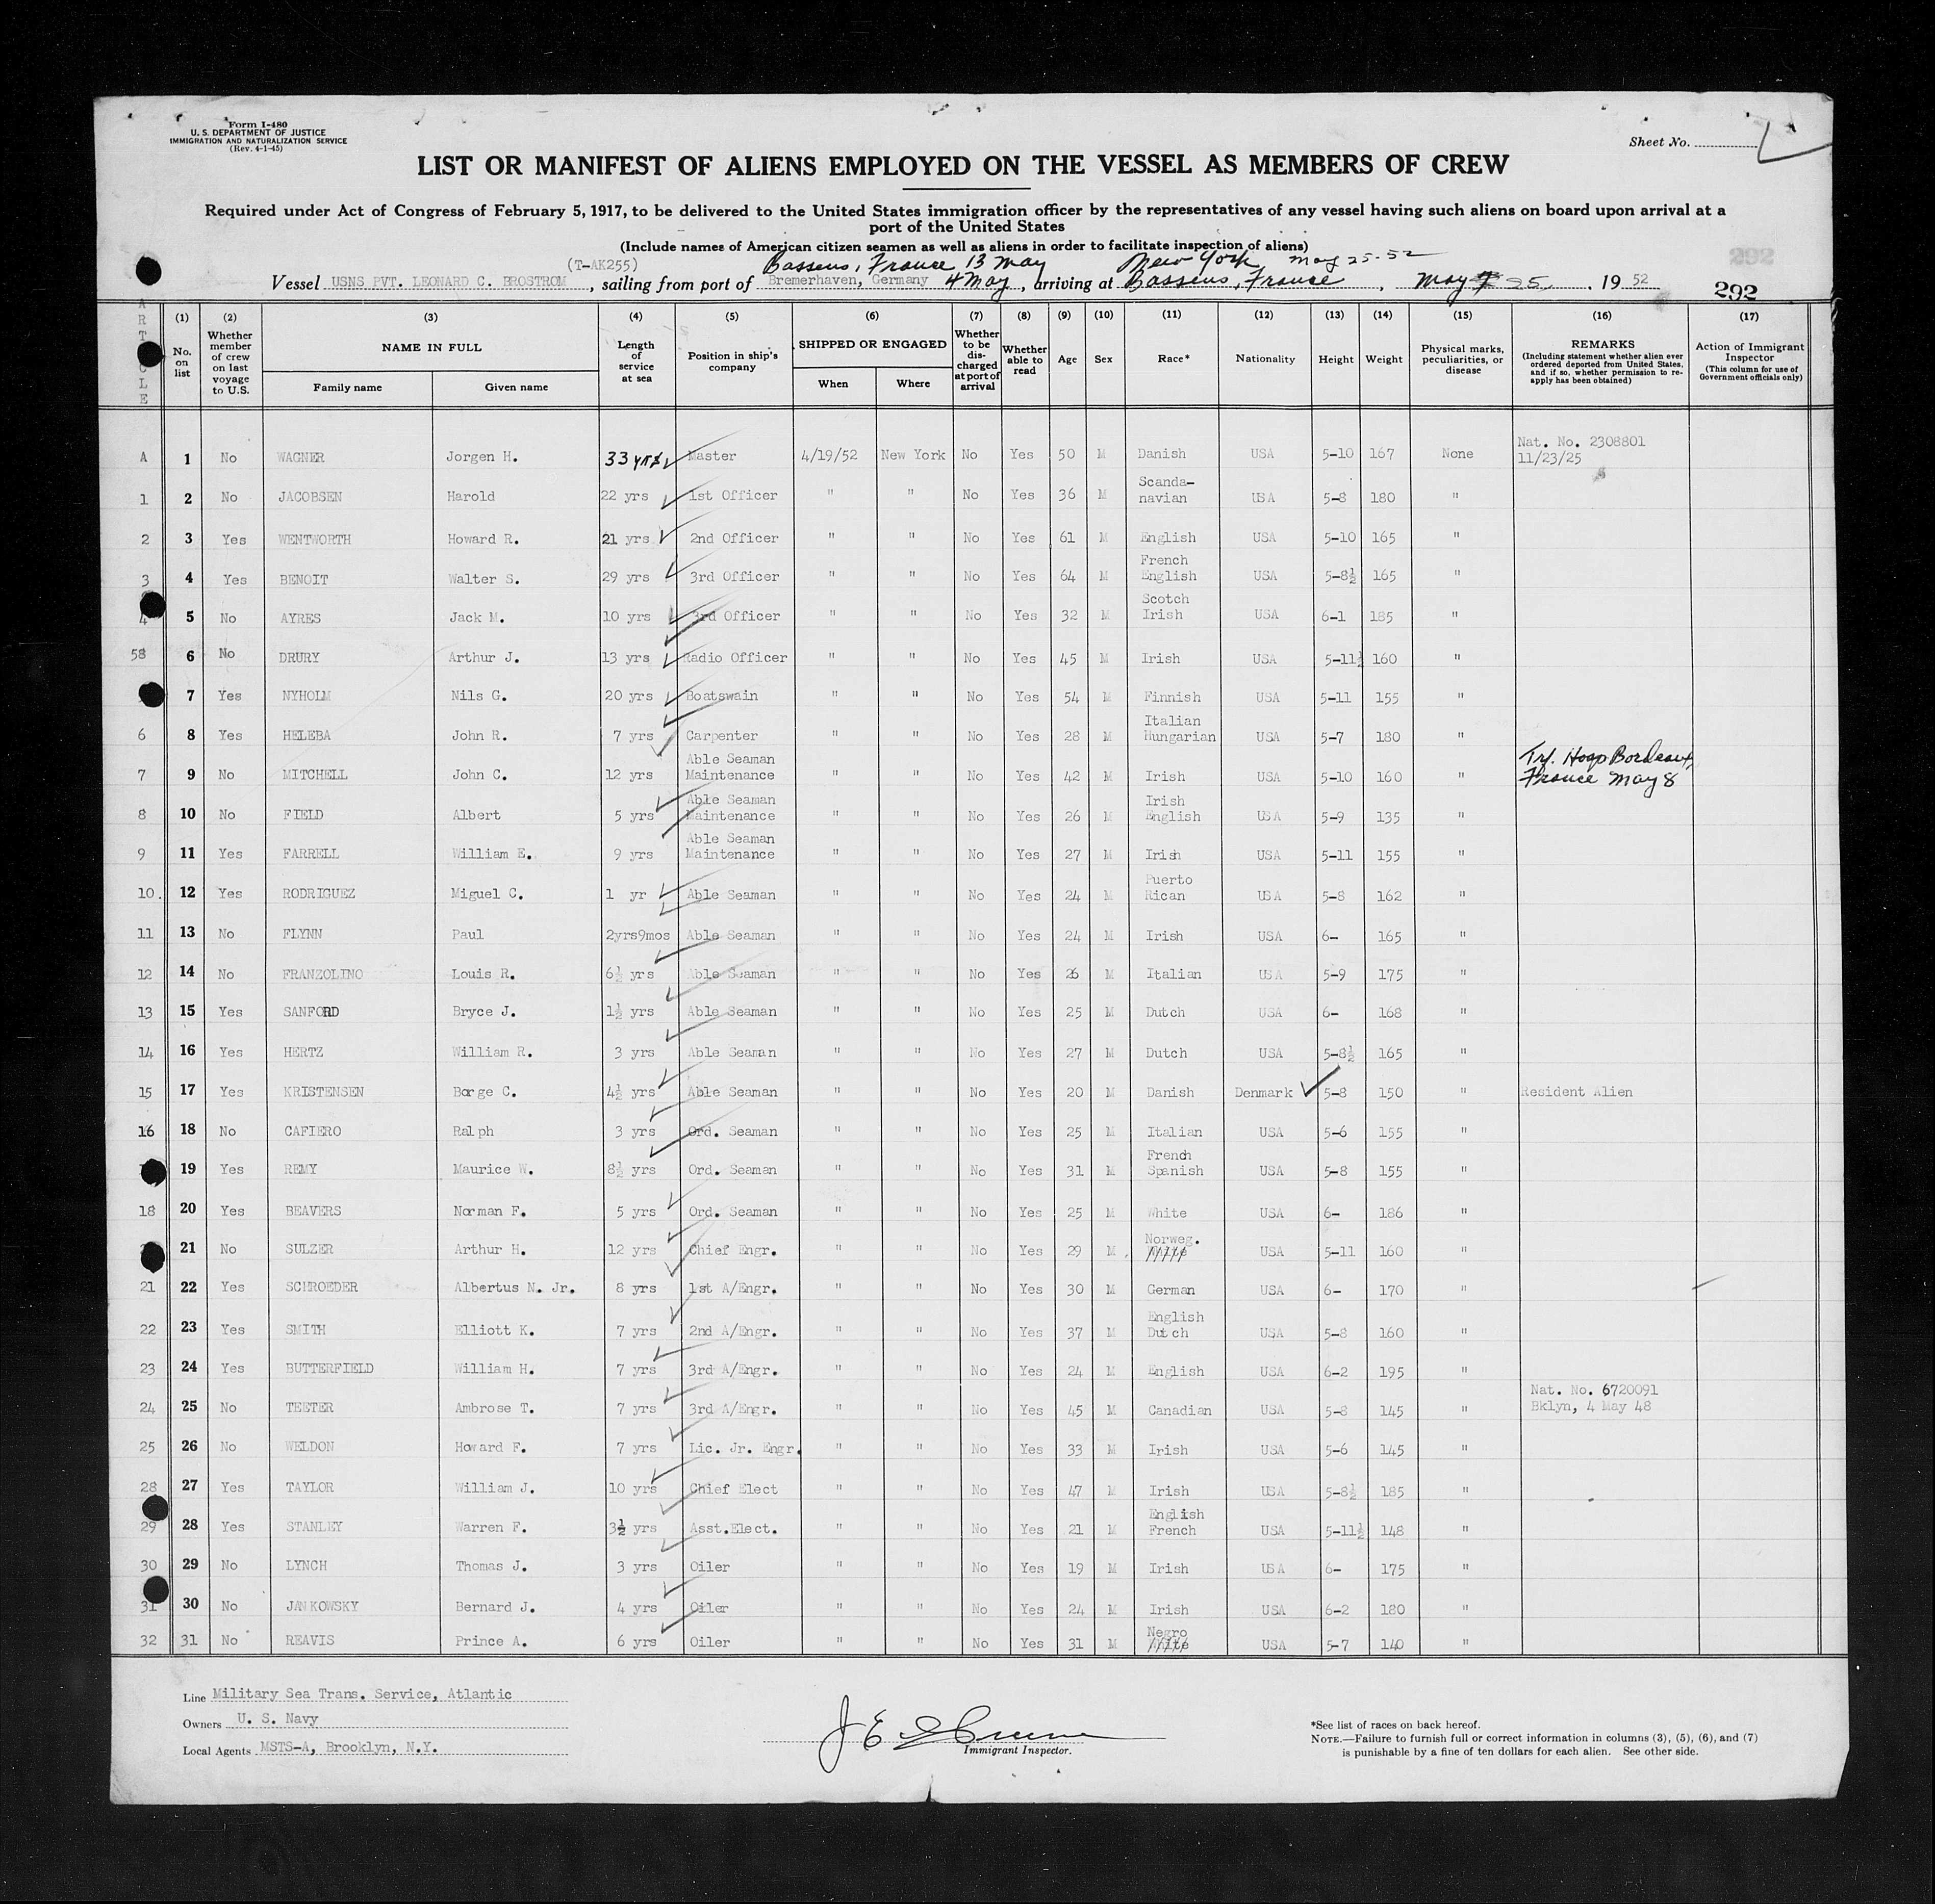 Form I-480
U. S. DEPARTMENT OF JUSTICE
IMMIGRATION AND NATURALIZATION SERVICE
(Rev. 4-1-45)
Sheet No.
LIST OR MANIFEST OF ALIENS EMPLOYED ON THE VESSEL AS MEMBERS OF CREW
Required under Act of Congress of February 5, 1917, to be delivered to the United States immigration officer by the representatives of any vessel having such aliens on board upon arrival at a
port of the United States
(Include names of American citizen seamen as well as aliens in order to facilitate inspection of aliens)
292
(T-AK255) Bassens, France 13 May New York May 25-52
Vessel USNS PVT. LEONARD C. BROSTROM, sailing from port of Bremerhaven, Germany 4 May, arriving at Bassens, France, May 7 25, 19 52
292
ARTICLE
(1) No. on list
(2) Whether member of crew on last voyage to U.S.
(3) NAME IN FULL
Family name Given name
(4) Length of service at sea
(5) Position in ship's company
(6) SHIPPED OR ENGAGED
When Where
(7) Whether to be discharged at port of arrival
(8) Whether able to read
(9) Age
(10) Sex
(11) Race*
(12) Nationality
(13) Height
(14) Weight
(15) Physical marks, peculiarities, or disease
(16) REMARKS
(Including statement whether alien ever ordered deported from United States, and if so, whether permission to reapply has been obtained)
(17) Action of Immigrant Inspector
(This column for use of Government officials only)
A 1 No WAGNER Jorgen H. 33 yrs Master 4/19/52 New York No Yes 50 M Danish USA 5-10 167 None Nat. No. 2308801 11/23/25
1 2 No JACOBSEN Harold 22 yrs 1st Officer " " No Yes 36 M Scanda-navian USA 5-8 180 "
2 3 Yes WENTWORTH Howard R. 21 yrs 2nd Officer " " No Yes 61 M English USA 5-10 165 "
3 4 Yes BENOIT Walter S. 29 yrs 3rd Officer " " No Yes 64 M French English USA 5-8½ 165 "
4 5 No AYRES Jack M. 10 yrs 3rd Officer " " No Yes 32 M Scotch Irish USA 6-1 185 "
58 6 No DRURY Arthur J. 13 yrs Radio Officer " " No Yes 45 M Irish USA 5-11½ 160 "
7 Yes NYHOLM Nils G. 20 yrs Boatswain " " No Yes 54 M Finnish USA 5-11 155 "
6 8 Yes HELEBA John R. 7 yrs Carpenter " " No Yes 28 M Italian Hungarian USA 5-7 180 "
7 9 No MITCHELL John C. 12 yrs Able Seaman Maintenance " " No Yes 42 M Irish USA 5-10 160 " Trf. Hosp Bordeaux, France May 8
8 10 No FIELD Albert 5 yrs Able Seaman Maintenance " " No Yes 26 M Irish English USA 5-9 135 "
9 11 Yes FARRELL William E. 9 yrs Able Seaman Maintenance " " No Yes 27 M Irish USA 5-11 155 "
10. 12 Yes RODRIGUEZ Miguel C. 1 yr Able Seaman " " No Yes 24 M Puerto Rican USA 5-8 162 "
11 13 No FLYNN Paul 2yrs9mos Able Seaman " " No Yes 24 M Irish USA 6- 165 "
12 14 No FRANZOLINO Louis R. 6½ yrs Able Seaman " " No Yes 26 M Italian USA 5-9 175 "
13 15 Yes SANFORD Bryce J. 1½ yrs Able Seaman " " No Yes 25 M Dutch USA 6- 168 "
14 16 Yes HERTZ William R. 3 yrs Able Seaman " " No Yes 27 M Dutch USA 5-8½ 165 "
15 17 Yes KRISTENSEN Borge C. 4½ yrs Able Seaman " " No Yes 20 M Danish Denmark 5-8 150 " Resident Alien
16 18 No CAFIERO Ralph 3 yrs Ord. Seaman " " No Yes 25 M Italian USA 5-6 155 "
19 Yes REMY Maurice W. 8½ yrs Ord. Seaman " " No Yes 31 M French Spanish USA 5-8 155 "
18 20 Yes BEAVERS Norman F. 5 yrs Ord. Seaman " " No Yes 25 M White USA 6- 186 "
21 No SULZER Arthur H. 12 yrs Chief Engr. " " No Yes 29 M Norweg. White USA 5-11 160 "
21 22 Yes SCHROEDER Albertus N. Jr. 8 yrs 1st A/Engr. " " No Yes 30 M German USA 6- 170 "
22 23 Yes SMITH Elliott K. 7 yrs 2nd A/Engr. " " No Yes 37 M English Dutch USA 5-8 160 "
23 24 Yes BUTTERFIELD William H. 7 yrs 3rd A/Engr. " " No Yes 24 M English USA 6-2 195 "
24 25 No TEETER Ambrose T. 7 yrs 3rd A/Engr. " " No Yes 45 M Canadian USA 5-8 145 " Nat. No. 6720091 Bklyn, 4 May 48
25 26 No WELDON Howard F. 7 yrs Lic. Jr. Engr. " " No Yes 33 M Irish USA 5-6 145 "
28 27 Yes TAYLOR William J. 10 yrs Chief Elect " " No Yes 47 M Irish USA 5-8½ 185 "
29 28 Yes STANLEY Warren F. 3½ yrs Asst.Elect. " " No Yes 21 M English French USA 5-11½ 148 "
30 29 No LYNCH Thomas J. 3 yrs Oiler " " No Yes 19 M Irish USA 6- 175 "
31 30 No JANKOWSKY Bernard J. 4 yrs Oiler " " No Yes 24 M Irish USA 6-2 180 "
32 31 No REAVIS Prince A. 6 yrs Oiler " " No Yes 31 M Negro White USA 5-7 140 "
Line Military Sea Trans. Service, Atlantic
Owners U. S. Navy
Local Agents MSTS-A, Brooklyn, N.Y.
Immigrant Inspector.
*See list of races on back hereof.
NOTE.—Failure to furnish full or correct information in columns (3), (5), (6), and (7)
is punishable by a fine of ten dollars for each alien. See other side.